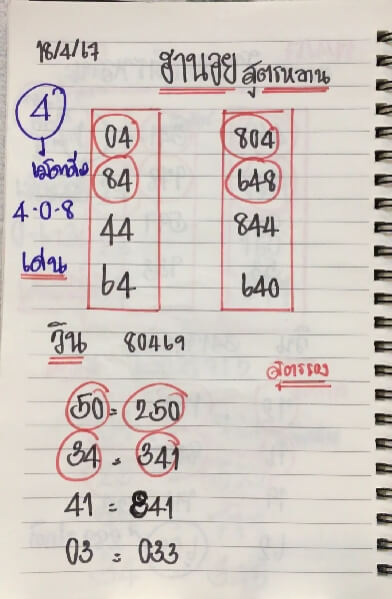 18/4/67
ฮานอย สูตรหวาน
4
เม็ดเดียว
4-0-8
เด่น
04 804
84 648
44 844
64 640
วิน 80469
สูตรรอง
50 = 250
34 = 341
41 = 841
03 = 033